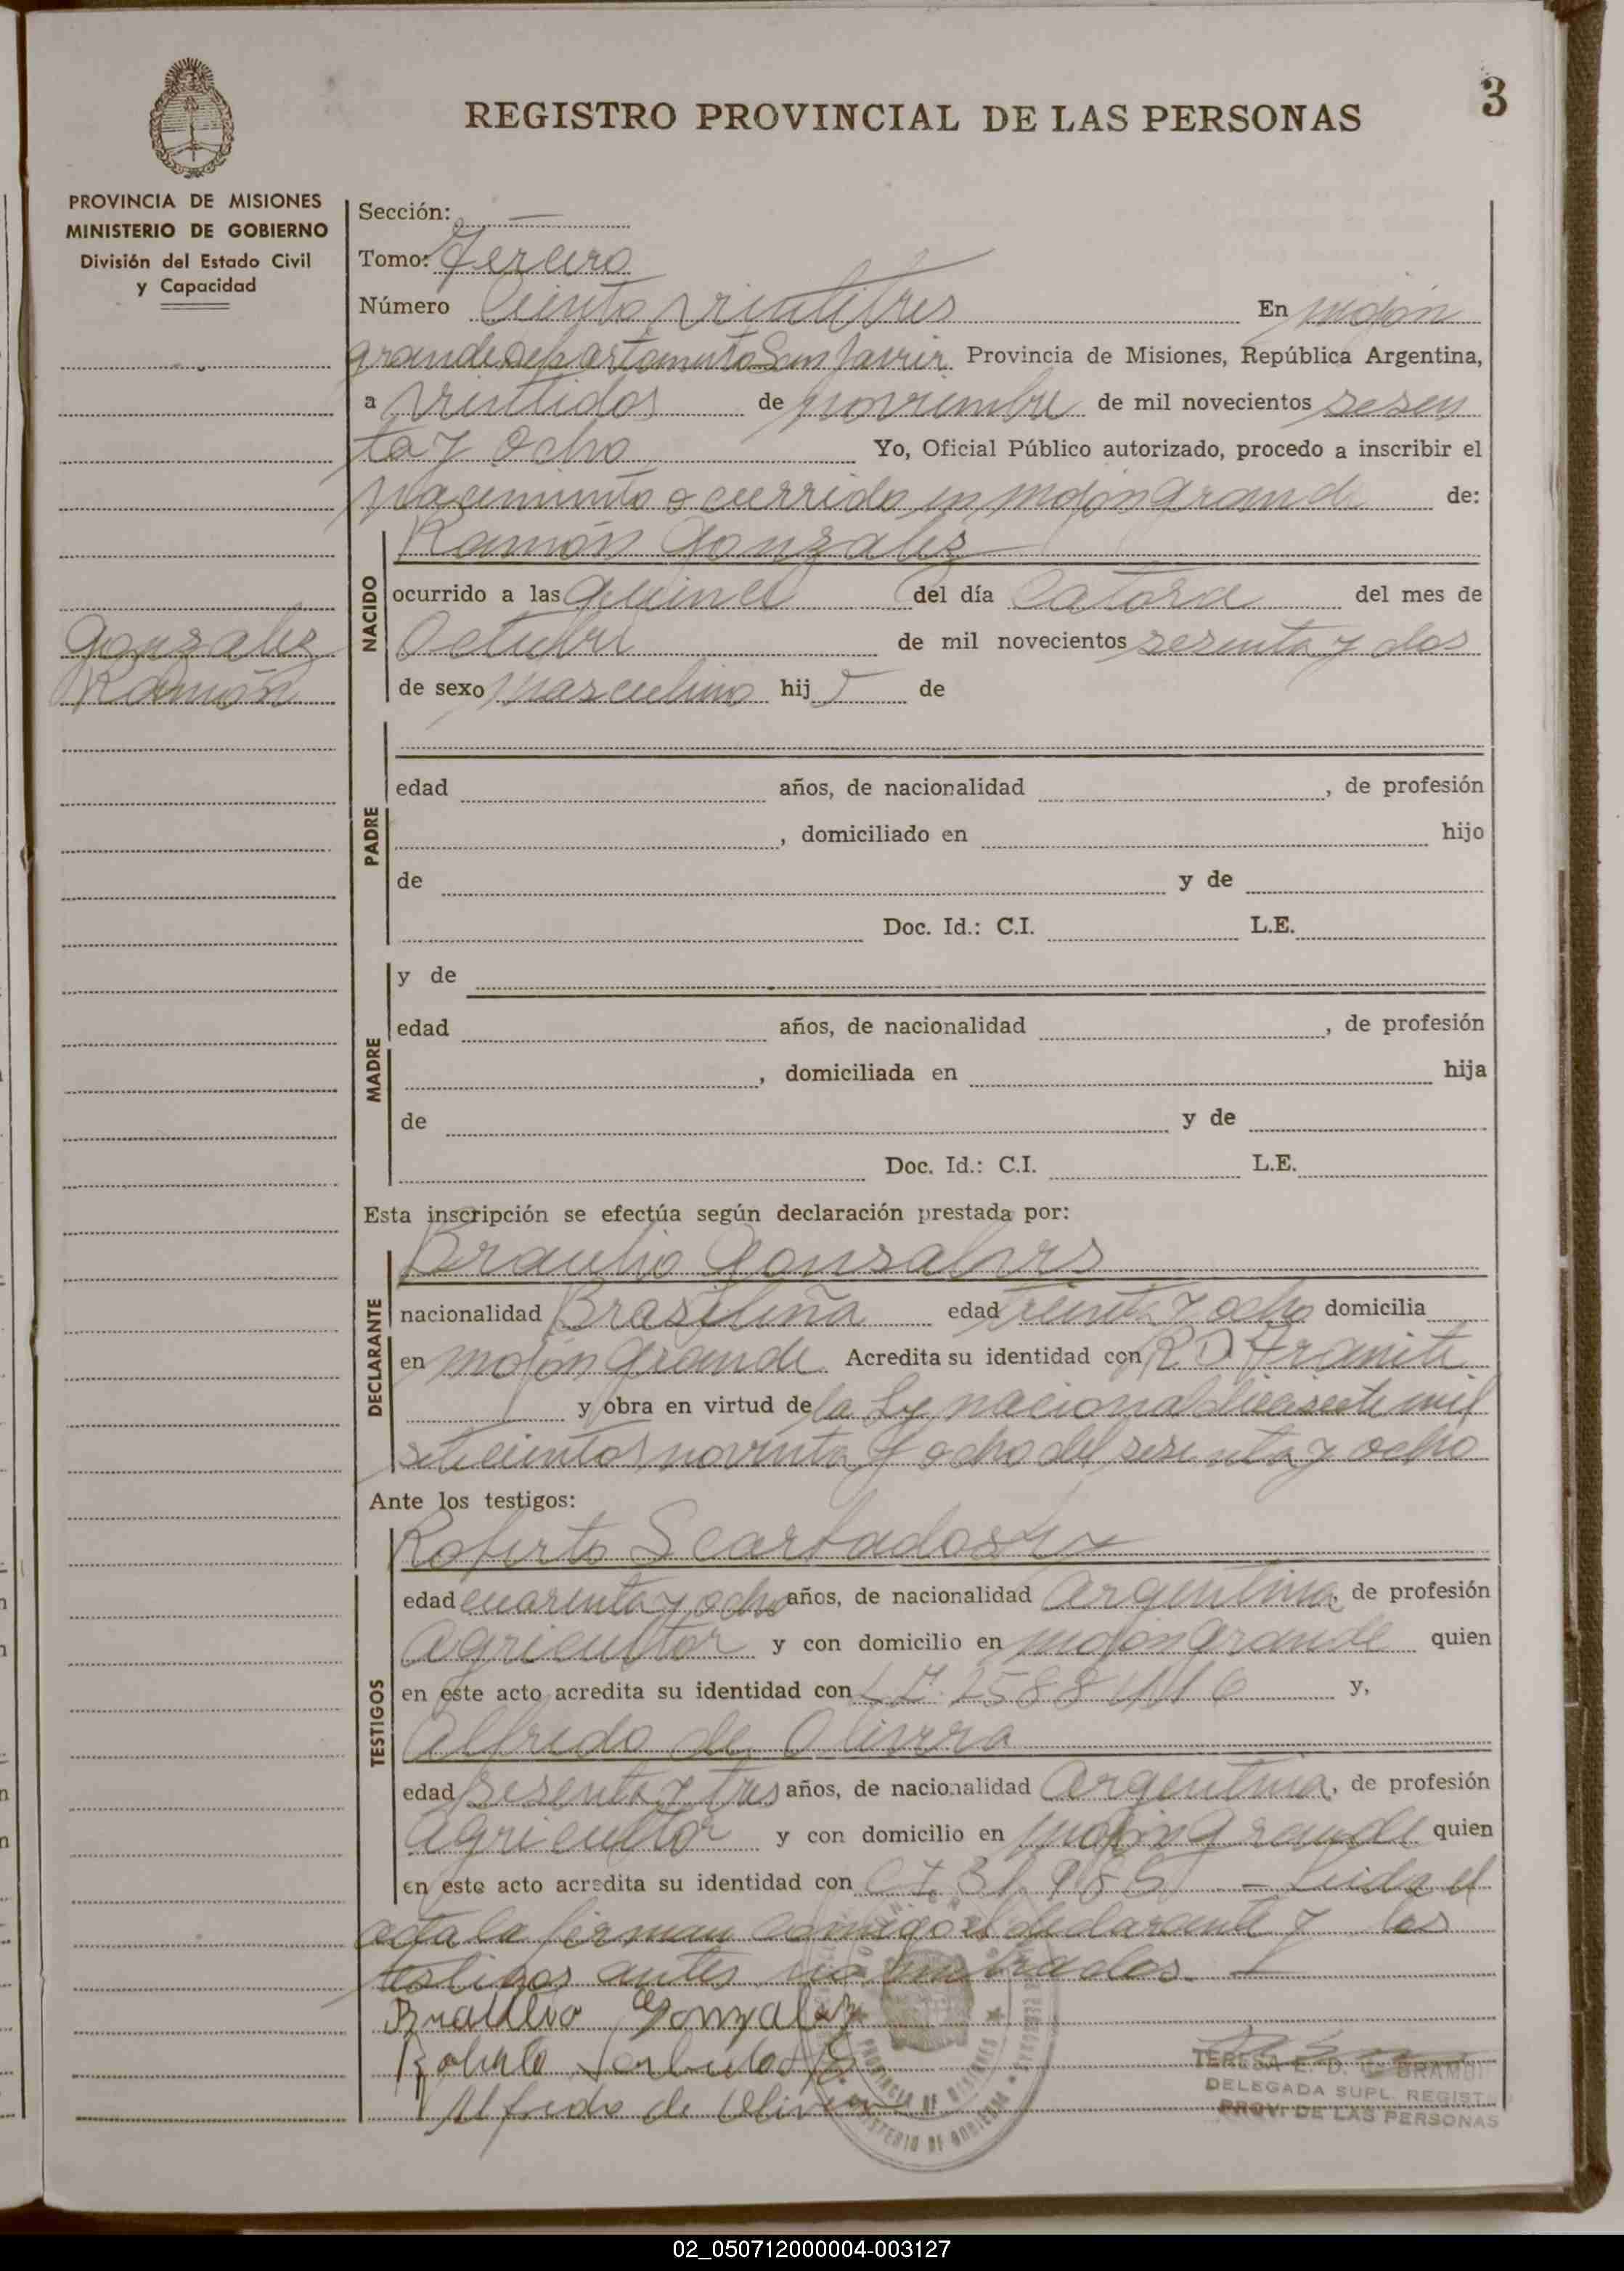 REGISTRO PROVINCIAL DE LAS PERSONAS
3
PROVINCIA DE MISIONES
MINISTERIO DE GOBIERNO
División del Estado Civil
y Capacidad
Gonzalez
Ramón
Sección: —
Tomo: Tercero
Número Ciento veintitres En Mojón
grande departamento San Javier Provincia de Misiones, República Argentina,
a veintidos de noviembre de mil novecientos sesen
ta y ocho Yo, Oficial Público autorizado, procedo a inscribir el
nacimiento ocurrido en Mojon Grande de:
NACIDO
Ramón Gonzalez
ocurrido a las quince del día catorce del mes de
Octubre de mil novecientos sesenta y dos
de sexo masculino hij de
PADRE
edad años, de nacionalidad , de profesión
, domiciliado en hijo
de y de
Doc. Id.: C.I. L.E.
MADRE
y de
edad años, de nacionalidad , de profesión
, domiciliada en hija
de y de
Doc. Id.: C.I. L.E.
Esta inscripción se efectúa según declaración prestada por:
DECLARANTE
Braulio
nacionalidad Brasileña edad treinta y ocho domicilia
en Mojón Grande Acredita su identidad con
y obra en virtud de la Ley nacional diecisiete mil
setecientos noventa y ocho del sesenta y ocho
Ante los testigos:
TESTIGOS
Roberto
edad cuarenta y ocho años, de nacionalidad Argentina, de profesión
Agricultor y con domicilio en Mojon Grande quien
en este acto acredita su identidad con y,
Alfredo de Olivera
edad Sesenta y tres años, de nacionalidad Argentina, de profesión
Agricultor y con domicilio en Mojon Grande quien
en este acto acredita su identidad con — Leida el
acta la firman conmigo el declarante y los
testigos antes nombrados.
Braulio Gonzalez
Roberto
Alfredo de Olivera
PROVINCIA DE MISIONES
MINISTERIO DE GOBIERNO
TERESA E. D.
DELEGADA SUPL. REGIST.
PROV. DE LAS PERSONAS
02_050712000004-003127